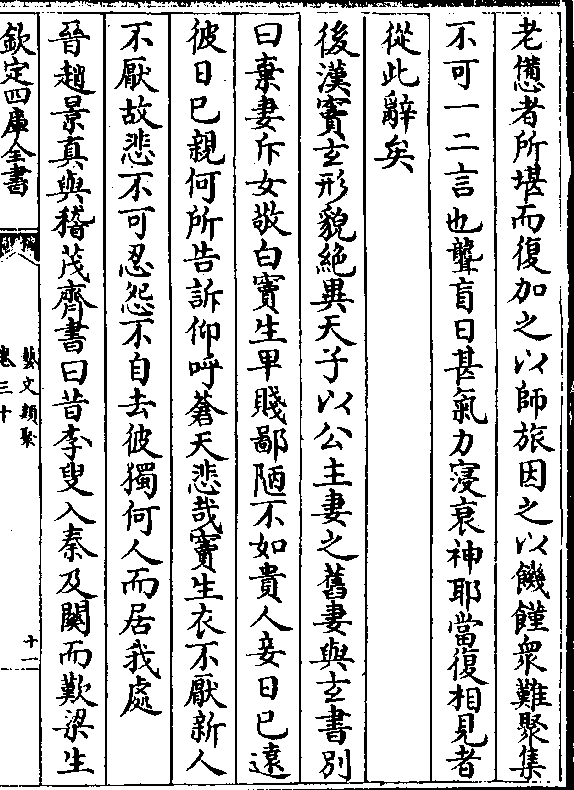 老憊者所堪而復加之以師旅因之以饑饉衆難聚集
不可一二言也聾盲日甚氣力寖衰神耶當復相見者
從此辭矣
後漢竇玄形貌絶異天子以公主妻之舊妻與玄書别
曰棄妻斥女敬白竇生卑賤鄙陋不如貴人妾日已遠
彼日已親何所告訴仰呼蒼天悲哉竇生衣不厭新人
不厭故悲不可忍怨不自去彼獨何人而居我處
晉趙景真與嵇茂齊書曰昔李叟入秦及關而歎梁生
欽定四庫全書
藝文類聚
卷三十
十一